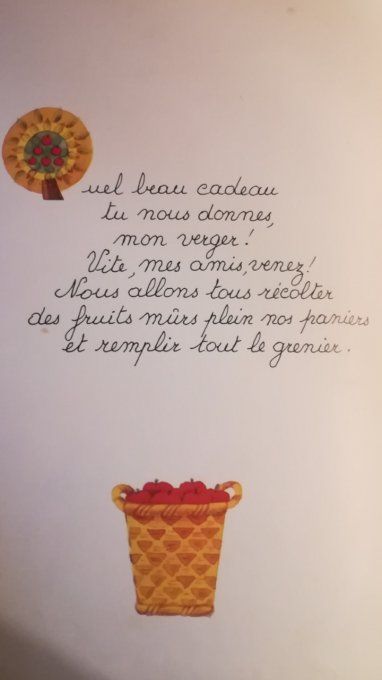 Quel beau cadeau
tu nous donnes,
mon verger!
Vite, mes amis, venez!
Nous allons tous récolter
des fruits mûrs plein nos paniers
et remplir tout le grenier.